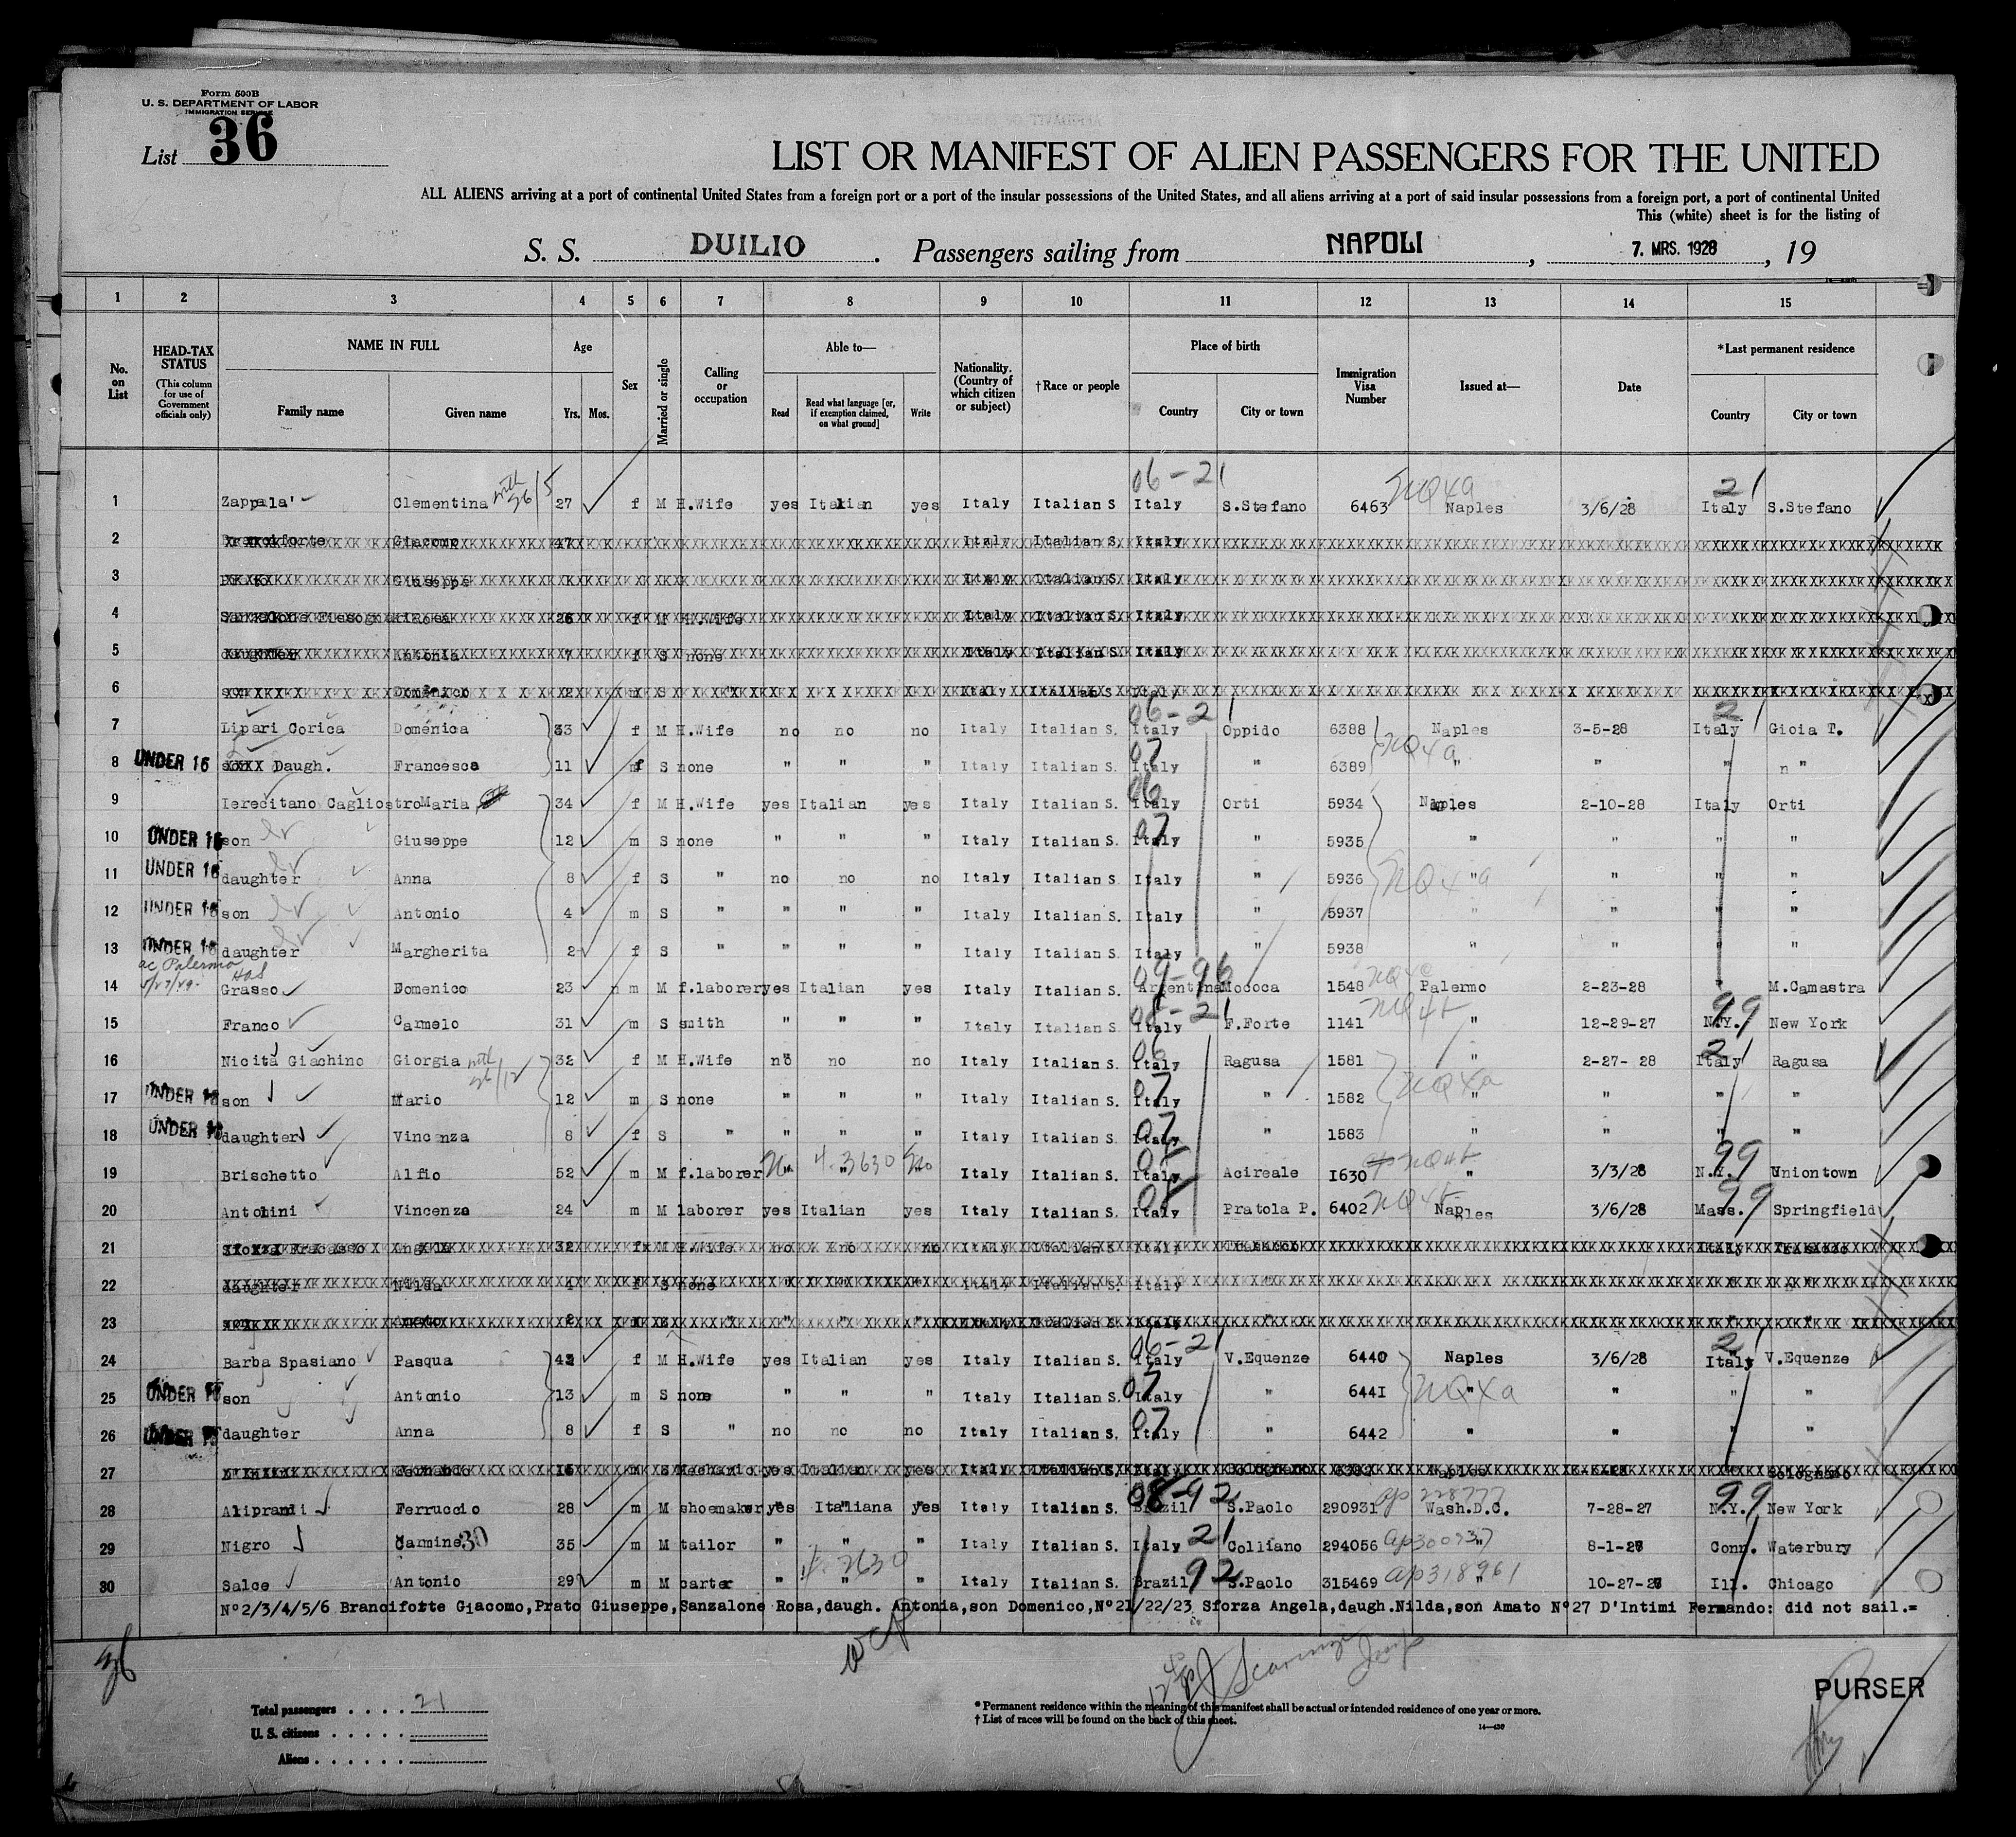 Form 500B
U. S. DEPARTMENT OF LABOR
IMMIGRATION SERVICE
List 36
LIST OR MANIFEST OF ALIEN PASSENGERS FOR THE UNITED
ALL ALIENS arriving at a port of continental United States from a foreign port or a port of the insular possessions of the United States, and all aliens arriving at a port of said insular possessions from a foreign port, a port of continental United
This (white) sheet is for the listing of
S. S. DUILIO. Passengers sailing from NAPOLI, 7. MRS. 1928, 19
1 2 3 4 5 6 7 8 9 10 11 12 13 14 15
No. on List
HEAD-TAX STATUS (This column for use of Government officials only)
NAME IN FULL
Family name Given name
Age
Yrs. Mos.
Sex
Married or single
Calling or occupation
Able to—
Read Read what language [or, if exemption claimed, on what ground] Write
Nationality. (Country of which citizen or subject)
†Race or people
Place of birth
Country City or town
Immigration Visa Number
Issued at—
Date
*Last permanent residence
Country City or town
06-21 NQ4a 21
1 Zappala' Clementina with 26/5 27 f M H.Wife yes Italian yes Italy Italian S Italy S.Stefano 6463 Naples 3/6/28 Italy S.Stefano
2 Giacomo 47 Italy Italian S. Italy
3 Giuseppe Italy Italian S. Italy
4 Rosa 26 f M H.Wife Italy Italian S. Italy
5 daughter Antonia 7 f S none Italy Italian S. Italy
6 son Domenico 2 m S " Italy Italian S Italy
06-21 21
7 Lipari Corica Domenica 33 f M H.Wife no no no Italy Italian S. Italy Oppido 6388 Naples 3-5-28 Italy Gioia T.
8 UNDER 16 Daugh. Francesca 11 f S none " " " Italy Italian S. 07 Italy " 6389 NQ4a " " " "
9 Ierecitano Cagliostro Maria 34 f M H.Wife yes Italian yes Italy Italian S. 06 Italy Orti 5934 Naples 2-10-28 Italy Orti
10 UNDER 16 son Giuseppe 12 m S none " " " Italy Italian S. 07 Italy " 5935 " " " "
11 UNDER 16 daughter Anna 8 f S " no no no Italy Italian S. Italy " 5936 NQ4a " " " "
12 UNDER 16 son Antonio 4 m S " " " " Italy Italian S. Italy " 5937 " " " "
13 UNDER 16 daughter Margherita 2 f S " " " " Italy Italian S. Italy " 5938 " " " "
ac Palermo
09-96
14 Grasso Domenico 23 m M f.laborer yes Italian yes Italy Italian S. Argentina Mococa 1548 Palermo 2-23-28 " M.Camastra
15 Franco Carmelo 31 m S smith " " " Italy Italian S. Italy F.Forte 1141 " 12-29-27 N.Y. 99 New York
16 Nicita Giachino Giorgia with 26/12 32 f M H.Wife no no no Italy Italian S. 06 Italy Ragusa 1581 " 2-27- 28 Italy 21 Ragusa
17 UNDER 16 son Mario 12 m S none " " " Italy Italian S. 07 Italy " 1582 NQ4a " " " "
18 UNDER 16 daughter Vincenza 8 f S " " " " Italy Italian S. 07 Italy " 1583 " " " "
19 Brischetto Alfio 52 m M f.laborer No 4.3630 No Italy Italian S. Italy Acireale 1630 " 3/3/28 N.Y. 99 Uniontown
20 Antolini Vincenzo 24 m M laborer yes Italian yes Italy Italian S. Italy Pratola P. 6402 Naples 3/6/28 Mass. 99 Springfield
21 Sforza Angela 32 f M H.Wife no no no Italy Italian S Italy
22 daughter Nilda 4 f S none Italy Italian S. Italy
23 son Amato 2 Italy Italian S. Italy
06-21 21
24 Barba Spasiano Pasqua 43 f M H.Wife yes Italian yes Italy Italian S. Italy V.Equenze 6440 Naples 3/6/28 Italy V.Equenze
25 UNDER 16 son Antonio 13 m S none " " " Italy Italian S. 07 Italy " 6441 NQ4a " " " "
26 UNDER 16 daughter Anna 8 f S " no no no Italy Italian S. 07 Italy " 6442 " " " "
27 Fernando m S Mechanic yes Italian yes Italy Italian S. Italy Naples Bolognano
28 Aliprandi Ferruccio 28 m M shoemaker yes Italiana yes Italy Italian S. 08-92 Brazil S.Paolo 290931 ap 228777 Wash.D.C. 7-28-27 N.Y. 99 New York
29 Nigro Carmine 30 35 m M tailor " " " Italy Italian S. Italy 21 Colliano 294056 " 8-1-27 Conn. Waterbury
30 Salce Antonio 29 m M carter " " " Italy Italian S. Brazil 92 S.Paolo 315469 ap318961 " 10-27-27 Ill. Chicago
Nº2/3/4/5/6 Branciforte Giacomo,Prato Giuseppe,Sanzalone Rosa,daugh. Antonia,son Domenico,Nº21/22/23 Sforza Angela,daugh.Nilda,son Amato Nº27 D'Intimi Fernando: did not sail.=
Total passengers 21
U. S. citizens
Aliens
* Permanent residence within the meaning of this manifest shall be actual or intended residence of one year or more.
† List of races will be found on the back of this sheet.
14—430
PURSER